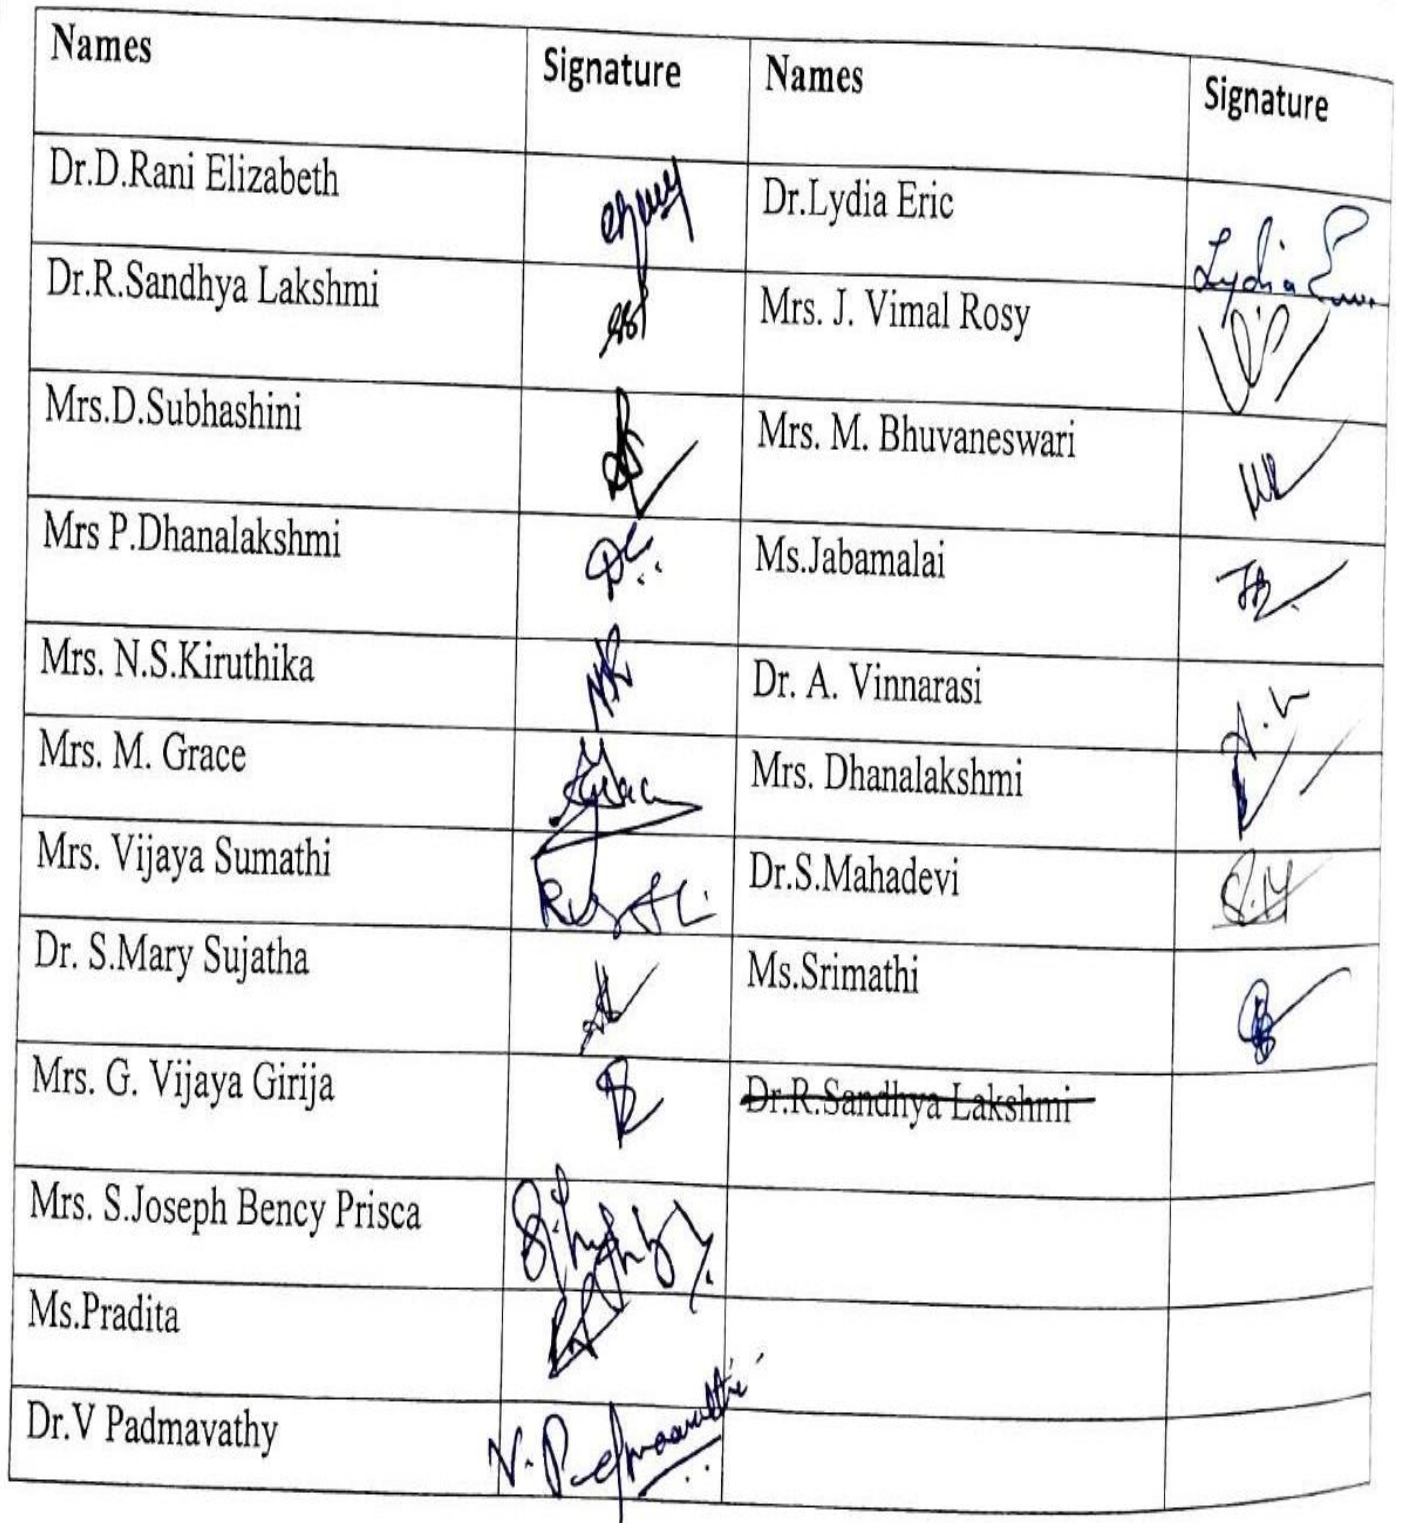 Names Signature Names Signature
Dr.D.Rani Elizabeth Dr.Lydia Eric Lydia
Dr.R.Sandhya Lakshmi Mrs. J. Vimal Rosy
Mrs.D.Subhashini Mrs. M. Bhuvaneswari
Mrs P.Dhanalakshmi Ms.Jabamalai
Mrs. N.S.Kiruthika Dr. A. Vinnarasi A.V
Mrs. M. Grace Mrs. Dhanalakshmi
Mrs. Vijaya Sumathi Dr.S.Mahadevi S.M
Dr. S.Mary Sujatha Ms.Srimathi
Mrs. G. Vijaya Girija Dr.R.Sandhya Lakshmi
Mrs. S.Joseph Bency Prisca
Ms.Pradita
Dr.V Padmavathy